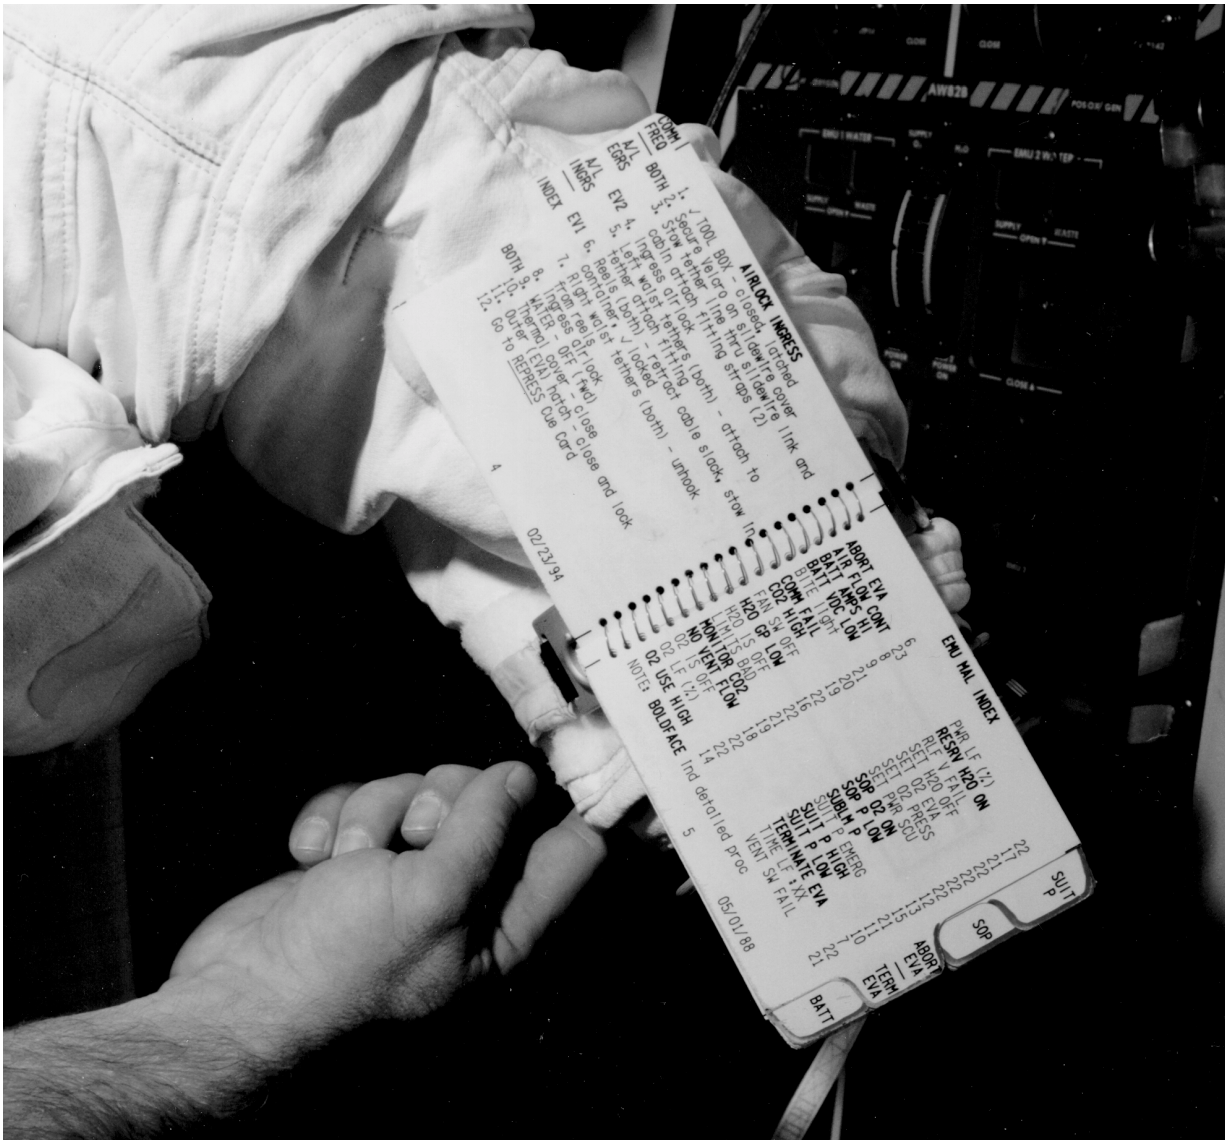 CLOSE
CLOSE
AW82B
EMU 1 WATER
SUPPLY
EMU 2 WATER
SUPPLY
WASTE
OPEN
SUPPLY
WASTE
OPEN
POWER ON
POWER ON
CLOSE
COMM
FREQ
A/L
EGRS
A/L
INGRS
INDEX
AIRLOCK INGRESS
1. √ TOOL BOX - closed, latched
BOTH 2. Secure Velcro on slidewire cover
3. Stow tether line thru slidewire link and
cabin attach fitting straps (2)
EV2 4. Ingress airlock
5. Left waist tethers (both) - attach to
tether attach fitting
EV1 6. Reels (both) - retract cable slack, stow in
container, √ locked
7. Right waist tethers (both) - unhook
from reels
8. Ingress airlock
BOTH 9. WATER - OFF (fwd)
10. Thermal cover - close
11. Outer (EVA) hatch - close and lock
12. Go to REPRESS Cue Card
4 02/23/94
EMU MAL INDEX
ABORT EVA 6
AIR FLOW CONT 23
BATT AMPS HI 8
BATT VDC LOW 9
BITE light 21
COMM FAIL 20
CO2 HIGH 19
FAN SW OFF 22
H2O GP LOW 16
H2O IS OFF 22
LIMITS BAD 21
MONITOR CO2 19
NO VENT FLOW 18
O2 IS OFF 22
O2 LF (%) 22
O2 USE HIGH 14
PWR LF (%) 22
RESRV H2O ON 17
RLF V FAIL 21
SET H2O OFF 22
SET O2 EVA 22
SET O2 PRESS 22
SET PWR SCU 22
SOP O2 ON 12
SOP P LOW 13
SUBLM P 15
SUIT P EMERG 21
SUIT P HIGH 11
SUIT P LOW 10
TERMINATE EVA 7
TIME LF :XX 22
VENT SW FAIL 21
NOTE: BOLDFACE ind detailed proc
5 05/01/88
SUIT
P
SOP
ABORT
EVA
TERM
EVA
BATT